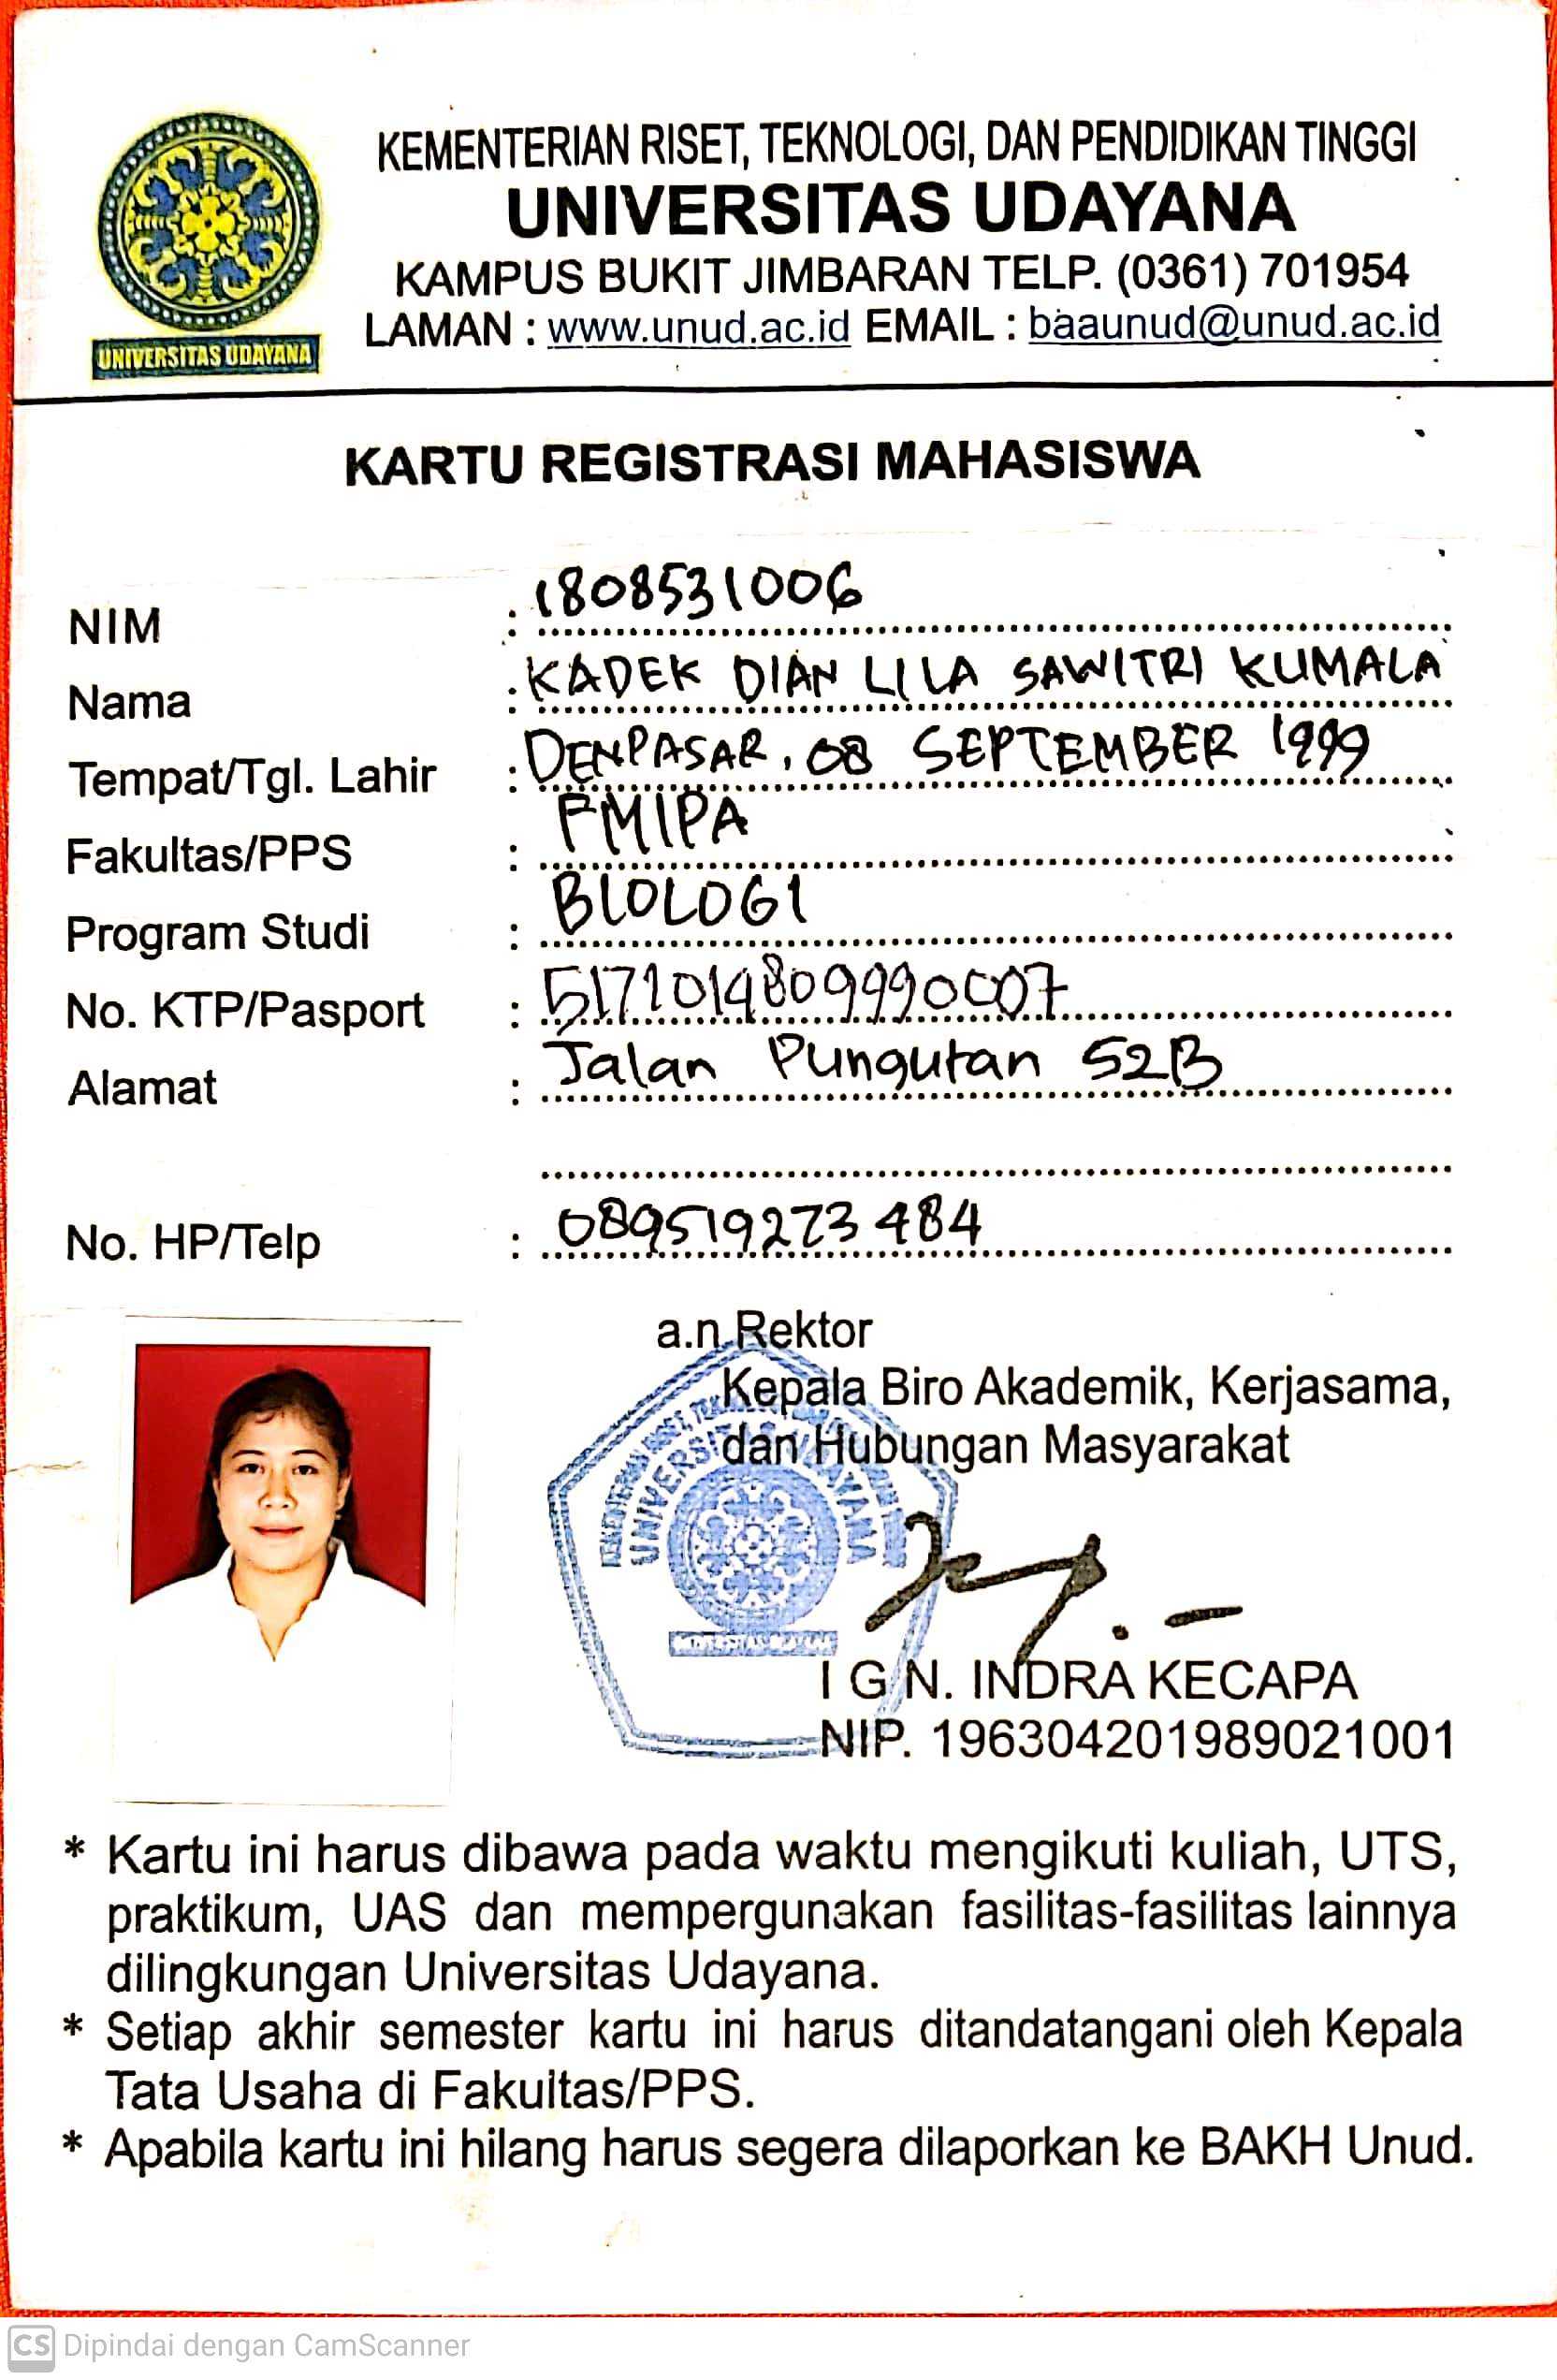 KEMENTERIAN RISET, TEKNOLOGI, DAN PENDIDIKAN TINGGI
UNIVERSITAS UDAYANA
KAMPUS BUKIT JIMBARAN TELP. (0361) 701954
LAMAN : www.unud.ac.id EMAIL : baaunud@unud.ac.id
UNIVERSITAS UDAYANA
KARTU REGISTRASI MAHASISWA
NIM : 1808531006
Nama : KADEK DIAN LILA SAWITRI KUMALA
Tempat/Tgl. Lahir : DENPASAR, 08 SEPTEMBER 1999
Fakultas/PPS : FMIPA
Program Studi : BIOLOGI
No. KTP/Pasport : 5171014809990007
Alamat : Jalan Pungutan 52B
No. HP/Telp : 089519273484
a.n.Rektor
Kepala Biro Akademik, Kerjasama,
dan Hubungan Masyarakat
UNIVERSITAS UDAYANA
I G N. INDRA KECAPA
NIP. 196304201989021001
* Kartu ini harus dibawa pada waktu mengikuti kuliah, UTS,
praktikum, UAS dan mempergunakan fasilitas-fasilitas lainnya
dilingkungan Universitas Udayana.
* Setiap akhir semester kartu ini harus ditandatangani oleh Kepala
Tata Usaha di Fakultas/PPS.
* Apabila kartu ini hilang harus segera dilaporkan ke BAKH Unud.
CS Dipindai dengan CamScanner